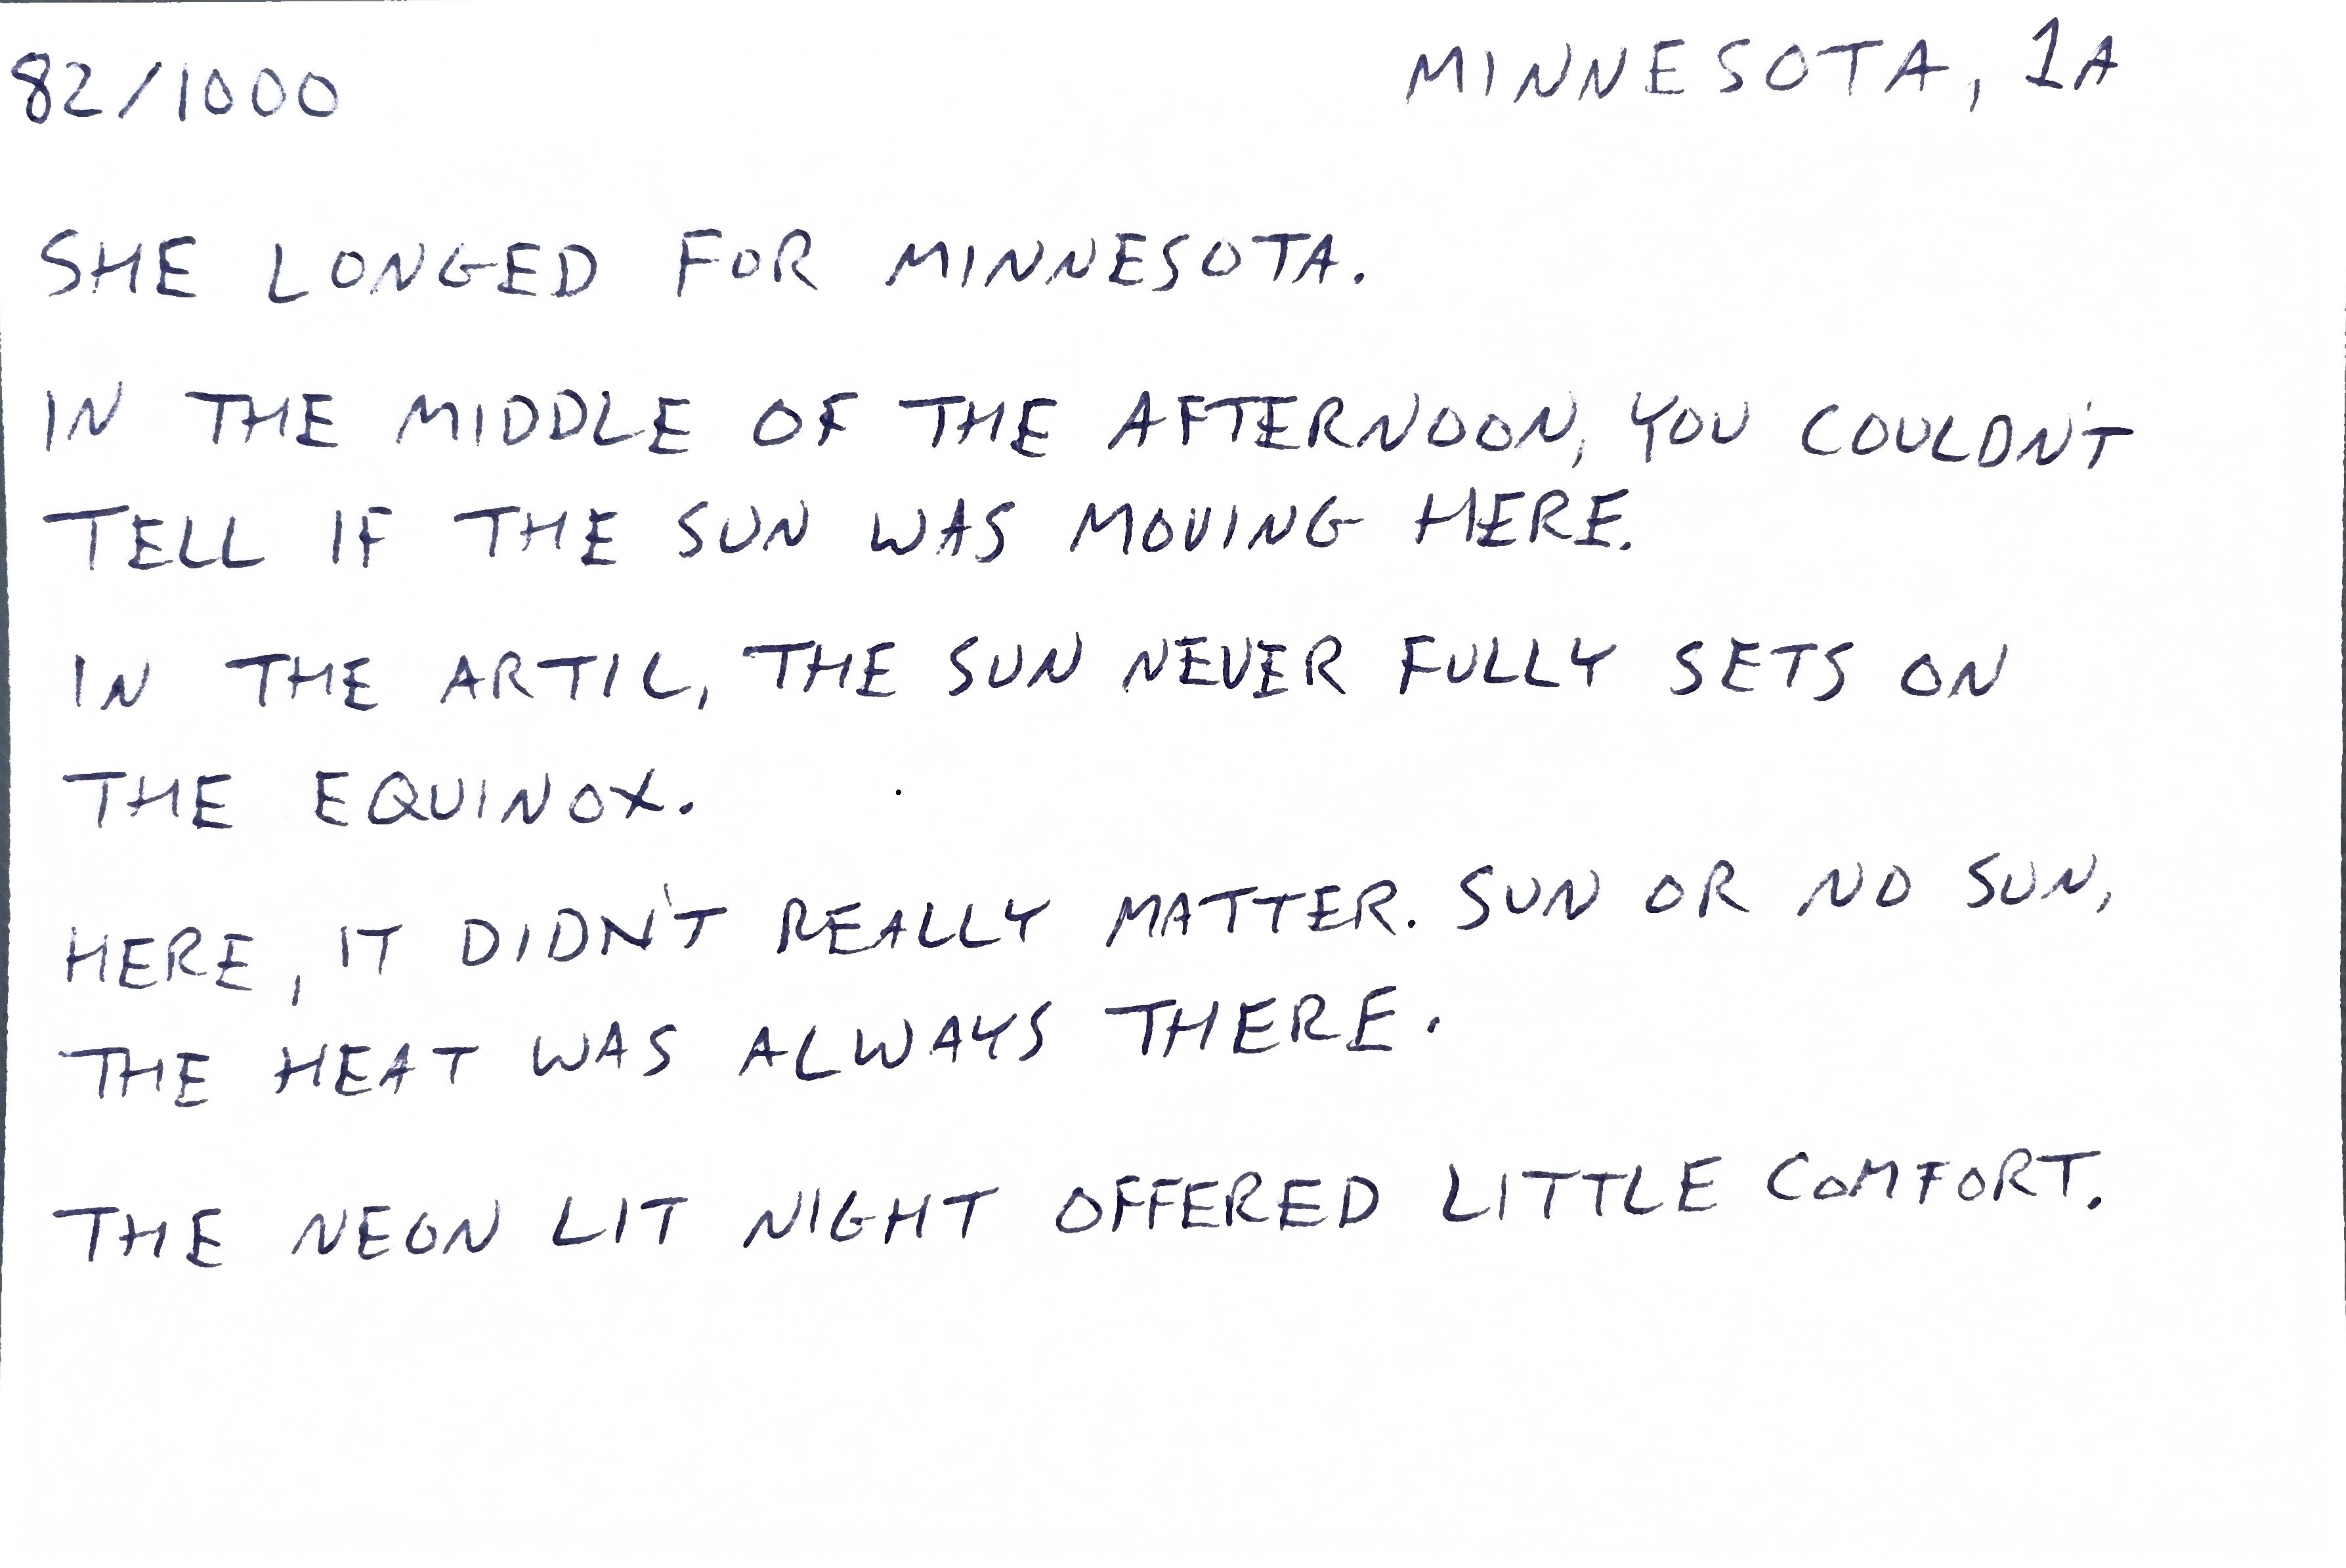 82/1000
MINNESOTA, 1A
SHE LONGED FOR MINNESOTA.
IN THE MIDDLE OF THE AFTERNOON, YOU COULDN'T
TELL IF THE SUN WAS MOVING HERE.
IN THE ARTIC, THE SUN NEVER FULLY SETS ON
THE EQUINOX.
HERE, IT DIDN'T REALLY MATTER. SUN OR NO SUN,
THE HEAT WAS ALWAYS THERE.
THE NEON LIT NIGHT OFFERED LITTLE COMFORT.